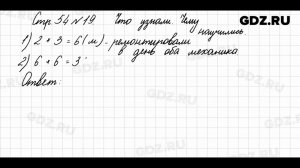 GDZ.RU
Стр. 54 № 19. Что узнали. Чему научились
1) 2 + 3 = 6 (м) - ремонтировали день оба механика
2) 6 + 6 = 3
Ответ: